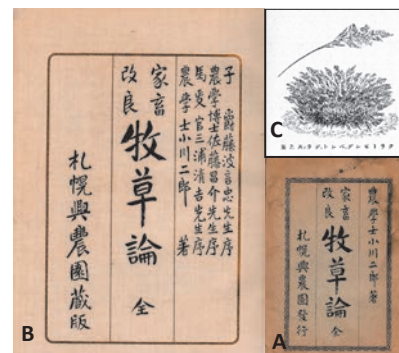 子 爵藤波言忠先生序
農學博士佐藤昌介先生序
官三浦清吉先生序
農學士小川二郎 著
家畜
改良
牧草論 全
札幌興農園藏版
B
C
農學士小川二郎著
家畜
改良
牧草論 全
札幌興農園發行
A